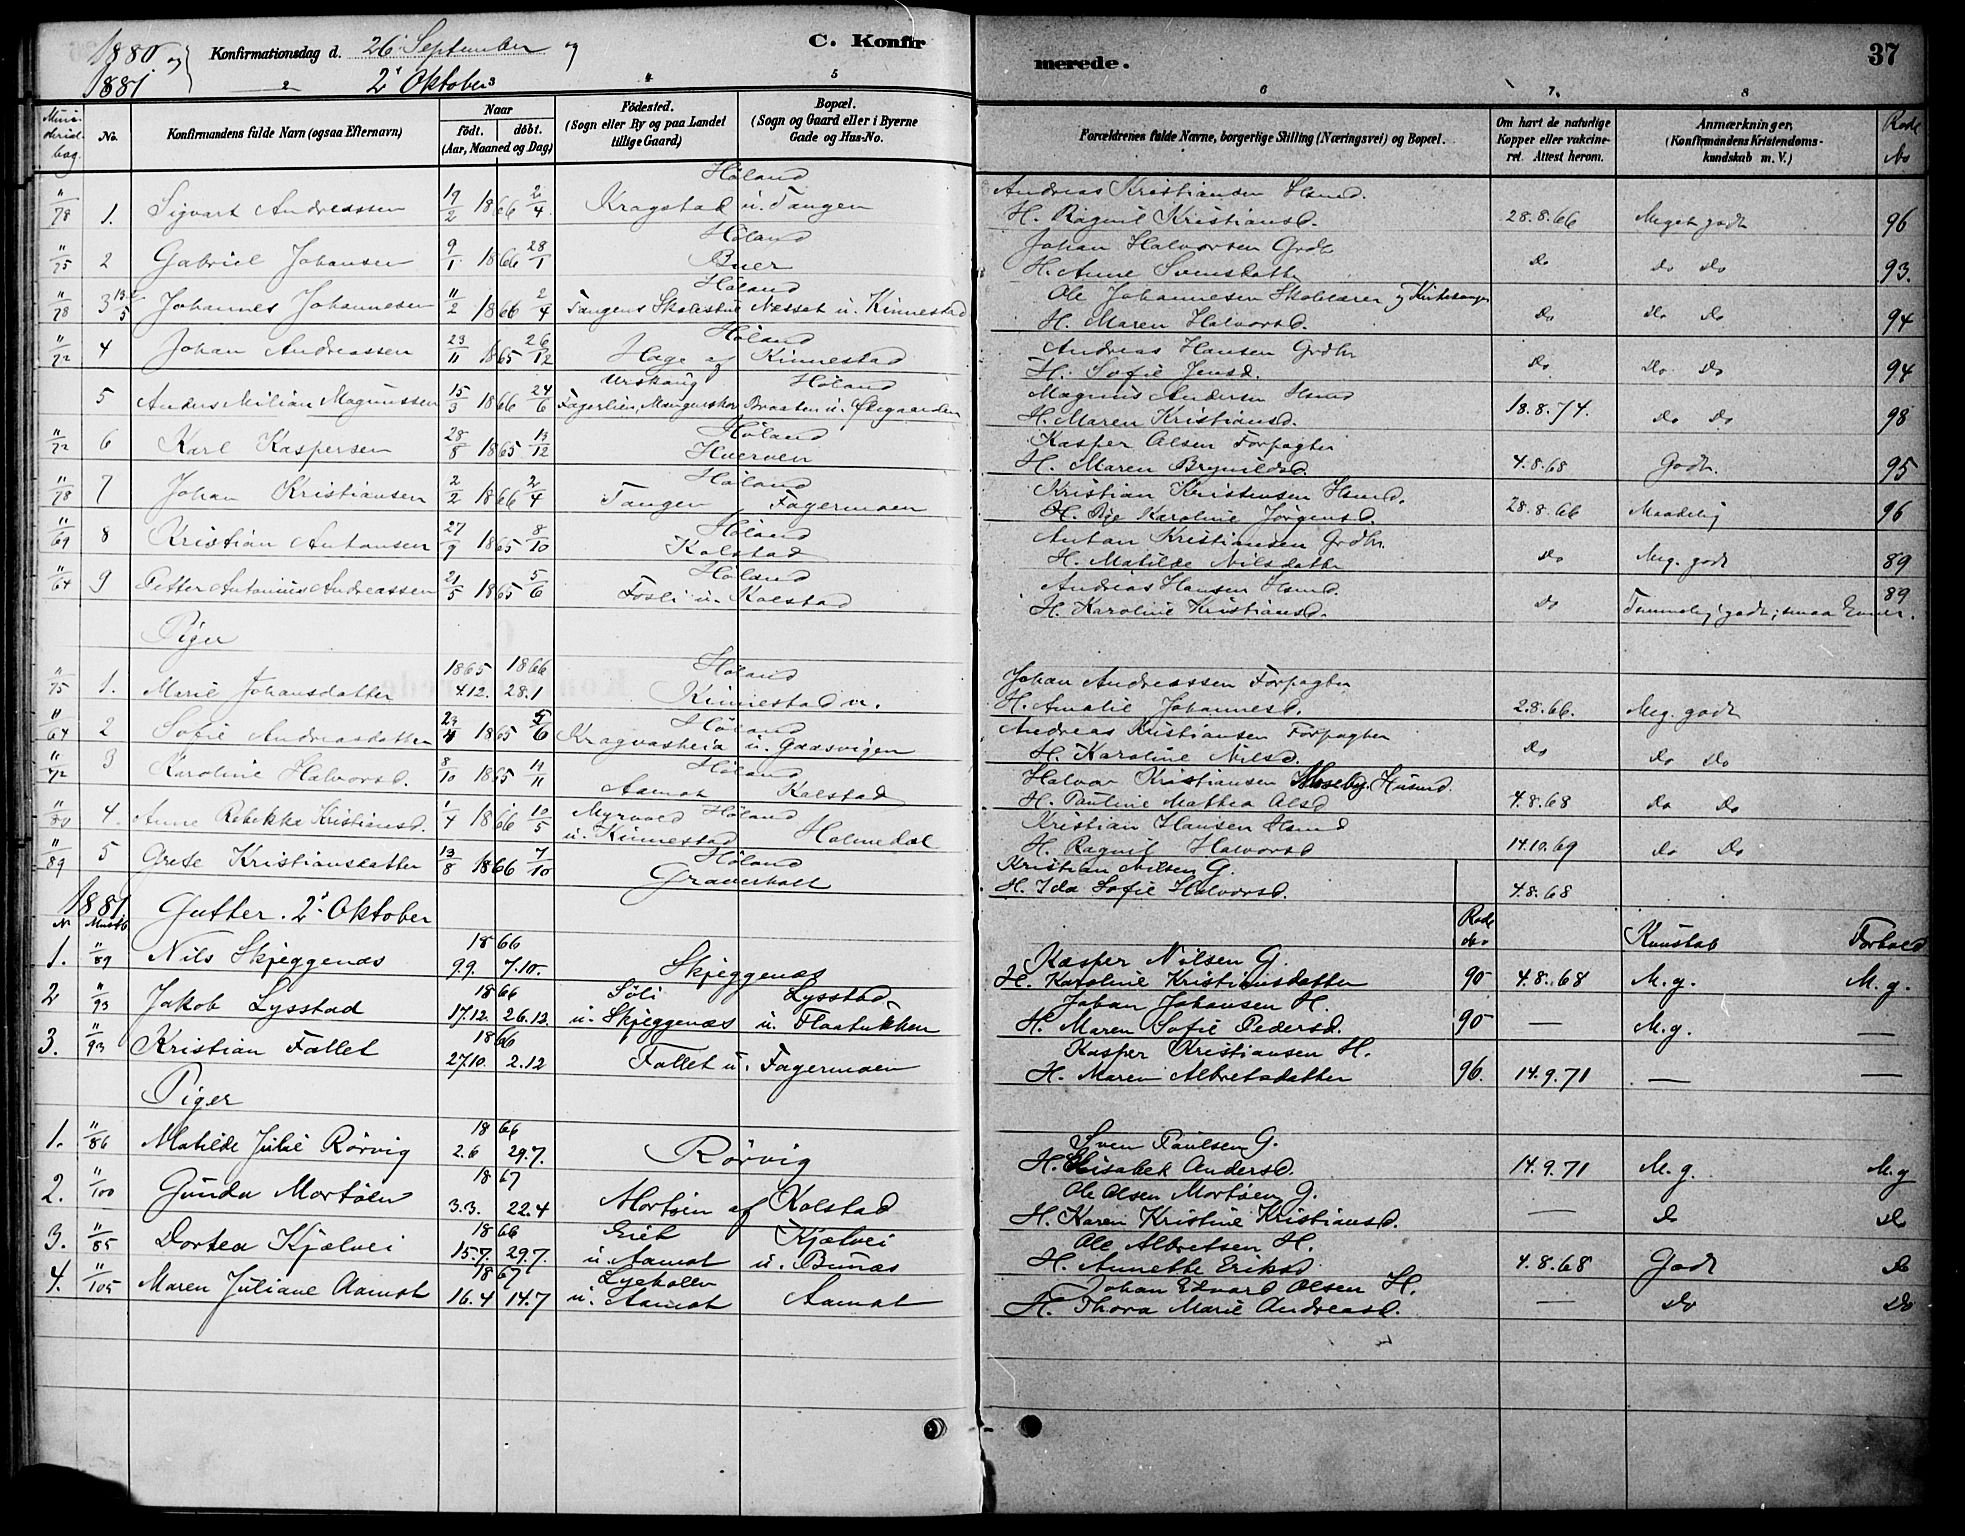 1880 og 1881 Konfirmationsdag d. 26 September og 2' Oktober
C. Konfirmerede.
37
2 3 4 5 6 7. 8
Ministerialbog. No. Konfirmandens fulde Navn (ogsaa Efternavn) Naar födt. döbt. (Aar, Maaned og Dag) Födested. (Sogn eller By og paa Landet tillige Gaard) Bopæl. (Sogn og Gaard eller i Byerne Gade og Hus-No. Forældrenes fulde Navne, borgerlige Stilling (Næringsvei) og Bopæl. Om havt de naturlige Kopper eller vakcineret. Attest herom. Anmærkninger, (Konfirmandens Kristendomskundskab m. V.) Rode No
Høland Andreas Kristiansen Hsmd.
"/78 1. Sigvart Andreassen 19/2 1866 2/4. Kragstad u. Tangen H. Ragnil Kristiansd. 28.8.66 Meget godt 96
Høland Johan Halvorsen Grdbr
"/75 2 Gabriel Johansen 9/1 1866 28/1 Buer H. Anne Svensdatter Do Do Do 93.
Høland Ole Johannesen Skolelærer og Kirkesanger
"/78 3 Johannes Johannesen 11/2 1866 2/4 Tangens Skolestue Næsset u. Kinnestad H. Maren Halvorsd. Do Do Do 94
Høland Andreas Hansen Grdbr
"/72 4 Johan Andreassen 23/11 1865 26/12 Hage af Kinnestad H. Sofie Jensd. Do Do Do 94
Urskaug Høland Magnus Andersen Hsmd
5 Anders Milian Magnussen 15/3 1866 24/6 Fagerlien, Mangenskov Braaten u. Øiegaarden H. Maren Kristiansd. 18.8.74. Do Do 98
Høland Kasper Olsen Forpagter
"/72 6 Karl Kaspersen 28/8 1865 13/12 Huerven H. Maren Brynildsd. 4.8.68 Godt. 95
Høland Kristian Kristensen Hsmd.
"/78 7 Johan Kristiansen 2/2 1866 2/4 Tangen Fagermoen H. Karoline Jørgensd. 28.8.66 Maadelig 96
Høland Anton Kristiansen Grdbr.
"/69 8 Kristian Antonsen 27/9 1865 8/10 Kolstad H. Matilde Nilsdatter Do Meg. godt 89
Høland Andreas Hansen Hsmd. 89
"/64 9 Petter Antonius Andreassen 21/5 1865 5/6 Fosli u. Kolstad H. Karoline Kristiansd. Do Temmelig godt; smaa Evner.
Piger
1865 1866 Høland Johan Andreassen Forpagter
"/75 1. Marie Johansdatter 4.12. 28.1 Kinnestad ve. H. Amalie Johannesd. 2.8.66. Meg. godt
Høland Andreas Kristiansen Forpagter
"/64 2 Sofie Andreasdatter 23/4 1865 5/6 Kragvasheia u. Gaasvigen H. Karoline Nilsd. Do Do Do
Høland Halvor Kristiansen Moseby. Husmd.
"/72 3 Karoline Halvorsd. 8/10 1865 11/11 Aamot Kolstad H. Pauline Mathea Olsd 4.8.68 Do Do
Myrvold Høland Kristian Hansen Hsmd
"/80 4. Anne Rebekka Kristiansd. 1/4 1866 10/5 u. Kinnestad Holmedal H. Ragnil Halvorsd 14.10.69 Do Do
Høland Kristian Nilsen G.
"/89 5 Grete Kristiansdatter 13/8 1866 7/10 Graverholt H. Ida Sofie Halvorsd. 4.8.68
1881 Gutter. 2' Oktober
Nr Minstb Rode No Kunskab Forhold
1866 Kasper Nilsen G.
1. "/89 Nils Skjeggenæs 9.9. 7.10. Skjeggenæs H. Karoline Kristiansdatter 90 4.8.68 M.g. M.g.
1866 Søli Lysstad Johan Johansen H.
2 "/93 Jakob Lysstad 17.12. 26.12. u. Skjeggenæs u. Flaatukken H. Maren Sofie Pedersd. 90 — M.g. —
1866 Kasper Kristiansen H.
3. "/93 Kristian Fallet 27.10. 2.12 Fallet u. Fagermoen H. Maren Albretsdatter 96. 14.9.71 — —
Piger
1866 Sven Paulsen G.
1. "/86 Matilde Julie Rörvig 2.6 29.7. Rörvig H. Elisabet Andersd. 14.9.71 M.g. M.g
1867 Ole Olsen Mortøen G.
2. "/100 Gunda Mortöen 3.3. 22.4 Mortøen af Kolstad H. Karen Kristine Kristiansd. — Do Do
1866 Eiet Kjølvei Ole Albretsen H.
3. "/85 Dortea Kjølvei 15.7. 29.7. u. Aamot u. Bunæs H. Annette Eriksd 4.8.68 Godt Do
1867 Lyekollen Johan Edvard Olsen H.
4. "/105 Maren Juliane Aamot 16.4 14.7 u. Aamot Aamot H. Thora Marie Andreasd. — Do Do